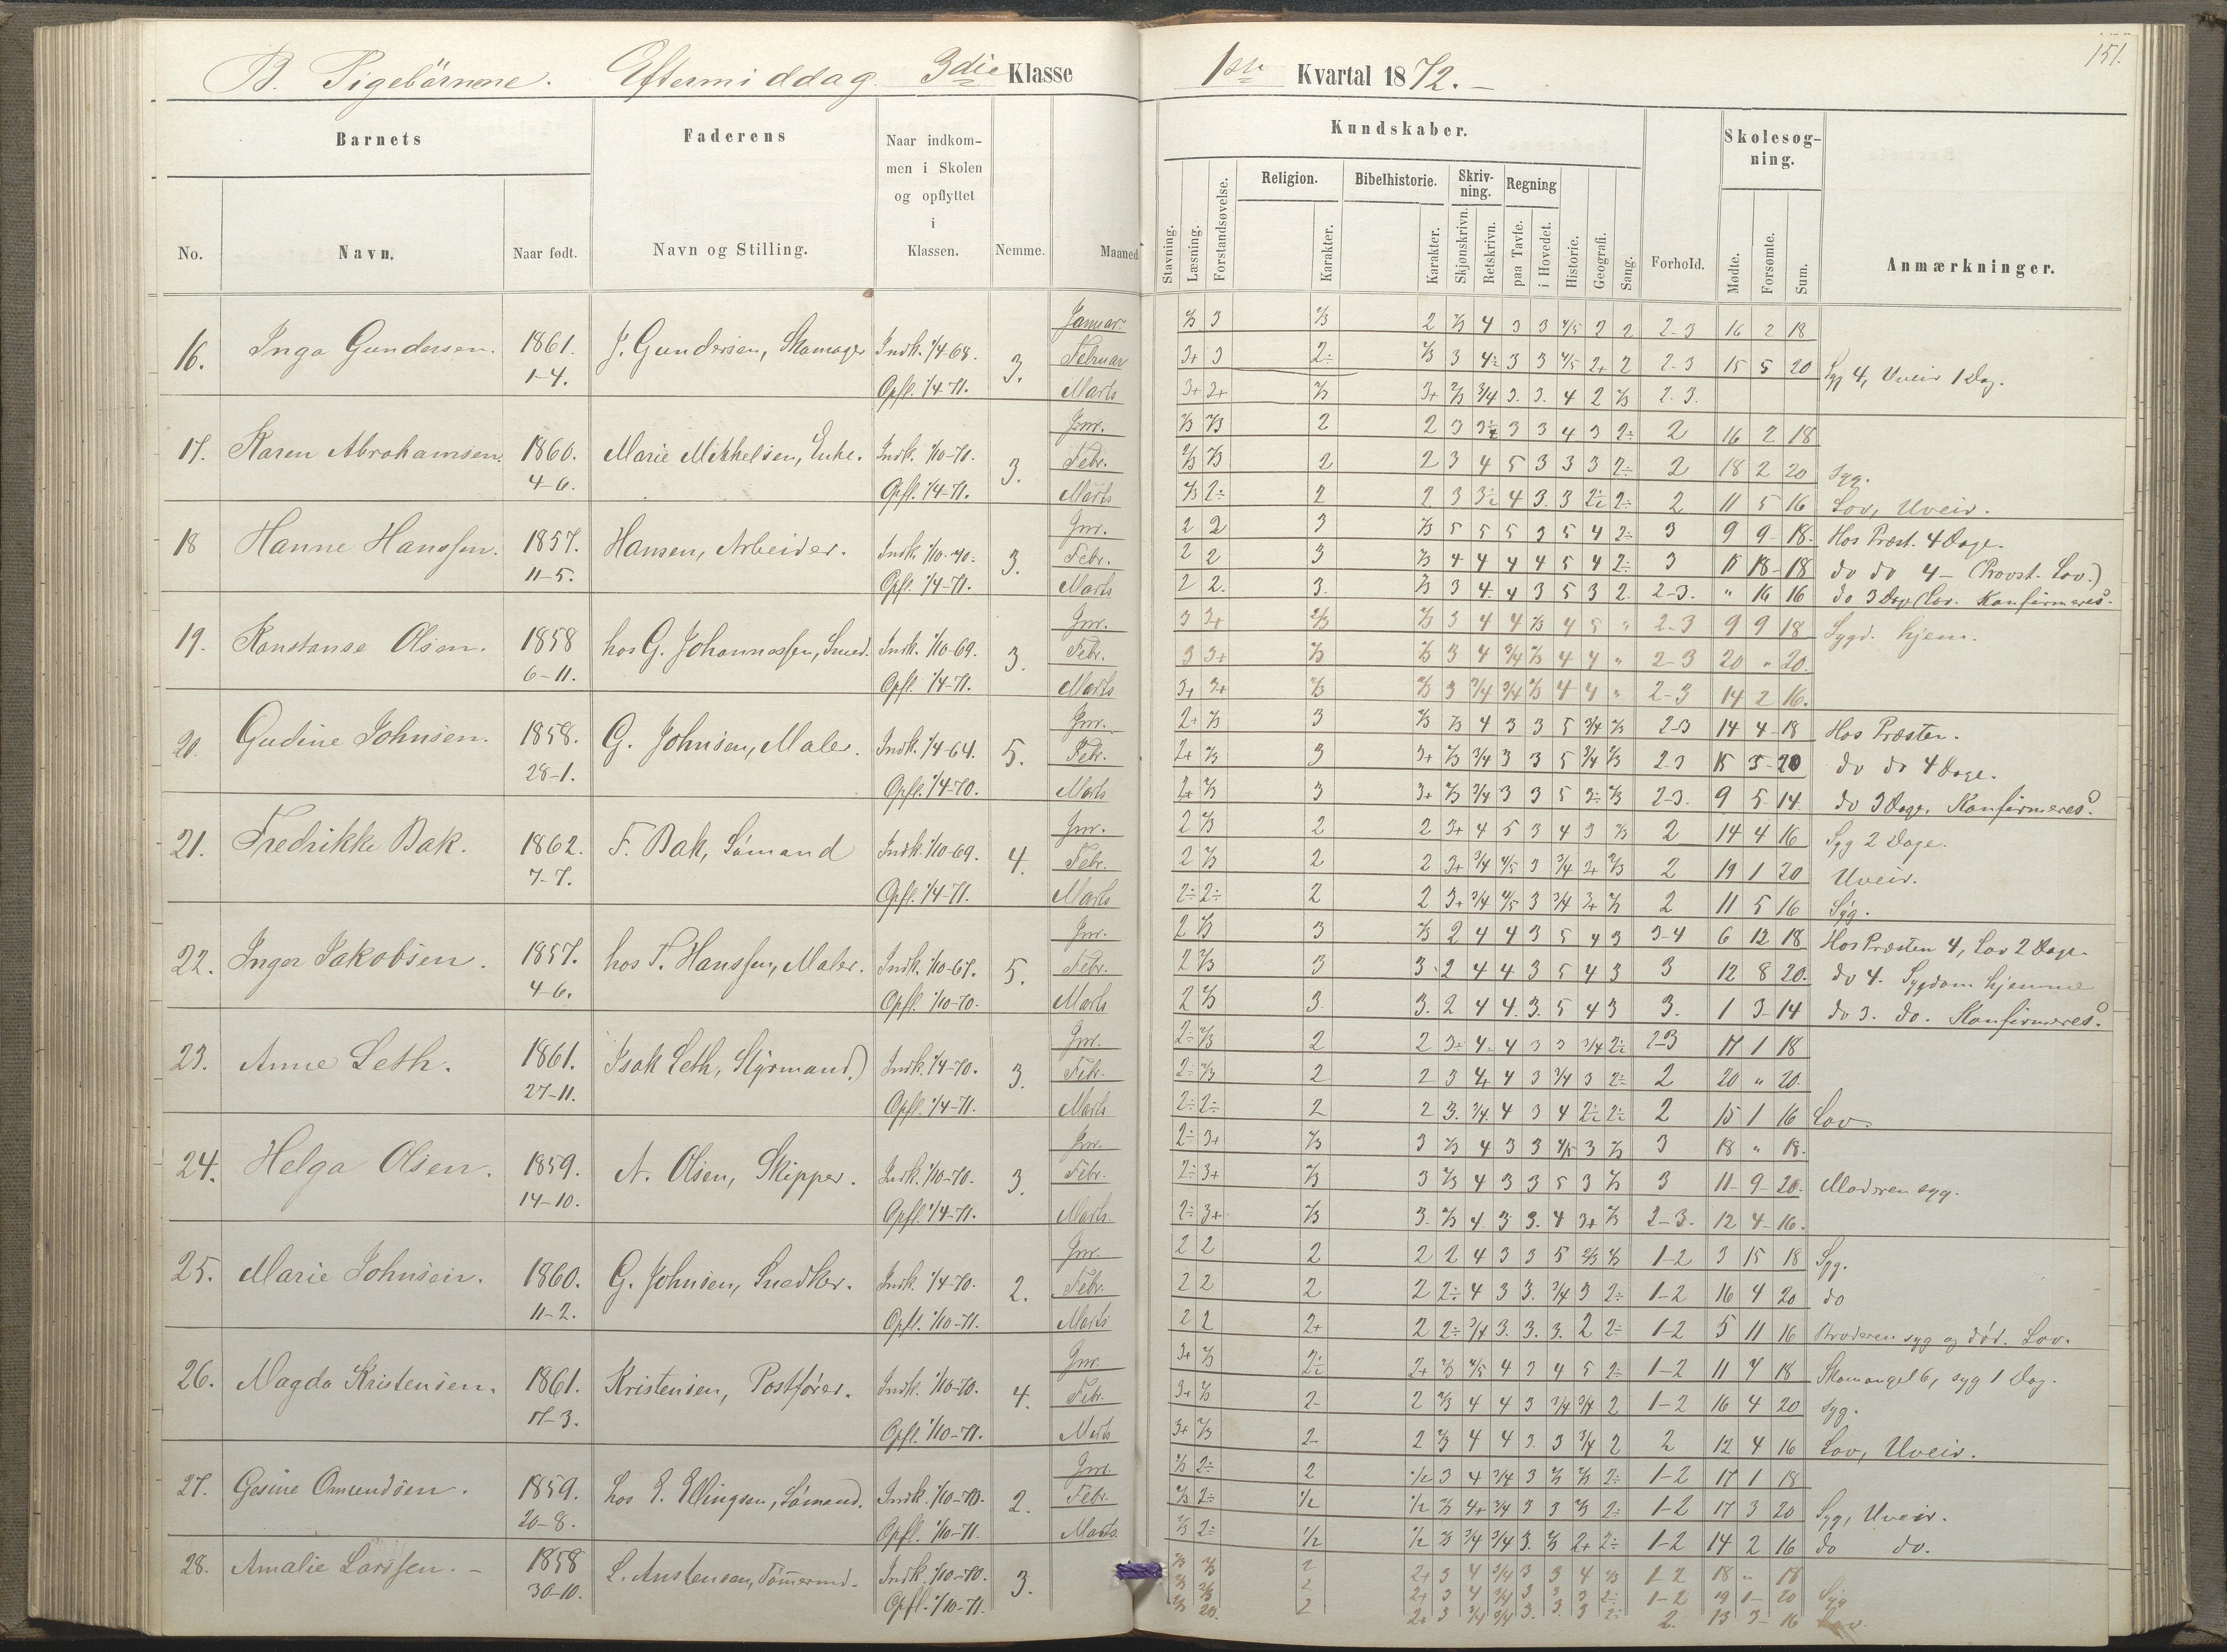 B. Pigebörnene. Eftermiddag 3die Klasse
1ste Kvartal 1872.-
151.
Barnets
Faderens
Naar indkommen i Skolen og opflyttet i Klassen.
Kundskaber.
Skolesogning.
No. Navn. Naar født. Navn og Stilling. Nemme. Maaned
Stavning. Læsning. Forstandsøvelse. Religion. Karakter. Bibelhistorie. Karakter. Skrivning. Skjønskrivn. Retskrivn. Regning paa Tavle. i Hovedet. Historie. Geografi. Sang. Forhold. Mødte. Forsømte. Sum. Anmærkninger.
16. Inga Gundersen. 1861. 1-4. J. Gundersen, Skomager Indk. 1/4-68. Opfl. 1/4-71. 3.
Januar 2/3 3 2/3 2 2/3 4 3 3 4/5 2 2 2-3 16 2 18
Februar 3+ 3 2÷ 2/3 3 4÷ 3 3 4/5 2+ 2 2-3 15 5 20 Syg 4, Uveir 1 Dag.
Marts 3+ 2+ 2/3 3+ 2/3 3/4 3. 3. 4 2 2/3 2-3.
17. Karen Abrahamsen. 1860. 4-6. Marie Mikkelsen, Enke. Indk. 1/10-70. Opfl. 1/4-71. 3.
Jnr. 2/3 2/3 2 2 3 3 3 4 3 2÷ 2 16 2 18
Febr. 2/3 2/3 2 2 3 4 5 3 3 3 2÷ 2 18 2 20 Syg.
Marts 2/3 2÷ 2 2 3 3÷ 4 3. 3 2÷ 2÷ 2 11 5 16 Lov, Uveir.
18 Hanne Hanssen. 1857. 11-5. Hansen, Arbeider. Indk. 1/10-70. Opfl. 1/4-71. 3.
Jnr. 2 2 3 2/3 5 5 5 3 5 4 2÷ 3 9 9 18. Hos Præst. 4 Dage.
Febr. 2 2 3 2/3 4 4 4 4 5 4 2÷ 3 18 do do 4- (Provst. Lov.)
Marts 2 2. 3. 2/3 3 4. 4 3 5 3 2. 2-3. " 16 16 do 3 Dag. Lov. Konfirmeres.
19. Konstanse Olsen. 1858 6-11. hos G. Johannessen, Smed. Indk. 1/10-69. Opfl. 1/4-71. 3.
Jnr. 3 3+ 2/3 2/3 3 4 4 2/3 4 5 " 2-3 9 9 18 Sygd. hjem.
Febr. 3 3+ 2/3 2/3 3 4 3/4 2/3 4 4 " 2-3 20 " 20.
Marts 3+ 3+ 2/3 2/3 3 3/4 3/4 2/3 4 4 " 2-3 14 2 16.
20 Gudine Johnsen. 1858. 28-1. G. Johnsen, Maler. Indk. 1/4-64. Opfl. 1/4-70. 5.
Jnr. 2+ 2/3 3 2/3 2/3 4 3 3 5 3/4 2/3 2-3 14 4 18 Hos Præsten.
Febr. 2+ 2/3 3 3+ 2/3 3/4 3 3 5 3/4 2/3 2-3 15 5 20 do do 4 Dage.
Marts 2+ 2/3 3 3+ 2/3 3/4 3 3 5 3÷ 2/3 2-3. 9 5 14 do 3 Dage. Konfirmeres.
21. Fredrikke Bak. 1862. 7-7. F. Bak, Sömand Indk. 1/10-69. Opfl. 1/4-71. 4.
Jnr. 2 2/3 2 2 3+ 4 5 3 4 3 2/3 2 14 4 16 Syg 2 Dage.
Febr. 2 2/3 2 2 3+ 3/4 4/5 3 3/4 3+ 2/3 2 19 1 20 Uveir.
Marts 2÷ 2÷ 2 2 3+ 3/4 4/5 3 3/4 3+ 2/3 2 11 5 16 Syg.
22. Inger Jakobsen. 1857. 4-6. hos T. Hanssen, Maler. Indk. 1/10-67. Opfl. 1/10-70. 5.
Jnr. 2 2/3 3 2/3 2 4 4 3 5 4 3 3-4 6 12 18 Hos Præsten 4, Lov 2 Dage.
Febr. 2 2/3 3 3. 2 4 4 3 5 4 3 3 12 8 20. do 4. Sygdom hjemme
Marts 2 2/3 3 3. 2 4 4. 3. 5 4 3 3. 1 3 14 do 3. do. Konfirmeres.
23. Anne Leth. 1861. 27-11. Isak Leth, Styrmand.) Indk. 1/4-70. Opfl. 1/4-71. 3.
Jnr. 2÷ 2/3 2 2 3÷ 4÷ 4 3 3 3/4 2÷ 2-3 17 1 18
Febr. 2÷ 2/3 2 2 3 4+ 4 3 3/4 3 2÷ 2 20 " 20.
Marts 2÷ 2÷ 2 2 3. 3/4. 4 3 4 2÷ 2÷ 2 15 1 16 Lov.
24. Helga Olsen. 1859. 14-10. N. Olsen, Skipper. Indk. 1/10-70. Opfl. 1/4-71. 3.
Jnr. 2÷ 3+ 2/3 3 2/3 4 3 3 4/5 3 2/3 3 18 " 18.
Febr. 2÷ 3+ 2/3 3 2/3 4 3 3 5 3 2/3 3 11 9 20. Moderen syg.
Marts. 2÷ 3+ 2/3 3. 2/3 4 3 3. 4 3+ 2/3 2-3. 12 4 16.
25. Marie Johnsen. 1860. 11-2. G. Johnsen, Snedker. Indk. 1/4-70. Opfl. 1/10-71. 2.
Jnr. 2 2 2 2 2 4 3 3 5 2/3 2/3 1-2 3 15 18 Syg.
Febr. 2 2 2 2 2÷ 4 3 3. 3/4 3 2÷ 1-2 16 4 20 do
Marts 2 2 2+ 2 2÷ 3/4 3. 3. 3. 2 2÷ 1-2 5 11 16 Broderen syg og död. Lov.
26. Magda Kristensen. 1861. 17-3. Kristensen, Postförer. Indk. 1/10-70. Opfl. 1/10-71. 4.
Jnr. 3+ 2/3 2÷ 2+ 2/3 4/5 4 3 4 5 2÷ 1-2 11 7 18 Skomangel 6, syg 1 Dag.
Febr. 3+ 2/3 2 2 2/3 4 4 3 3/4 3/4 2 1-2 16 4 20 syg.
Marts 3+ 2/3 2 2 2/3 4 4 3. 3 3/4 2 2 12 4 16 Lov, Uveir.
27. Gesine Omundsen. 1859. 20-8. hos E. Ellingsen, Sömand. Indk. 1/10-70. Opfl. 1/10-71. 2.
Jnr. 2/3 2÷ 2 1/2 3 4 3/4 3 2/3 2/3 2÷ 1-2 17 1 18
Febr. 2/3 2÷ 1/2 1/2 2/3 4+ 3/4 3 3 2/3 2÷ 1-2 17 3 20 Syg, Uveir.
Marts. 2/3 2÷ 1/2 1/2 2/3 3/4 3/4 3. 2/3 2+ 2÷ 1-2 14 2 16 do do.
28. Amalie Larssen.- 1858 30-10. L. Anstensen, Tömermd. Indk. 1/10-70. Opfl. 1/10-71. 3.
2/3 2/3 2 2+ 3 4 3/4 3 3 4 2/3 1-2 18 " 18
2/3 2/3 2 2+ 3 4 3/4 3 3 3 2÷ 1-2 19 1 20 Syg
2/3 2 2+ 3 3/4 3/4 3. 3. 3 2÷ 2. 13 3 16 Lov.